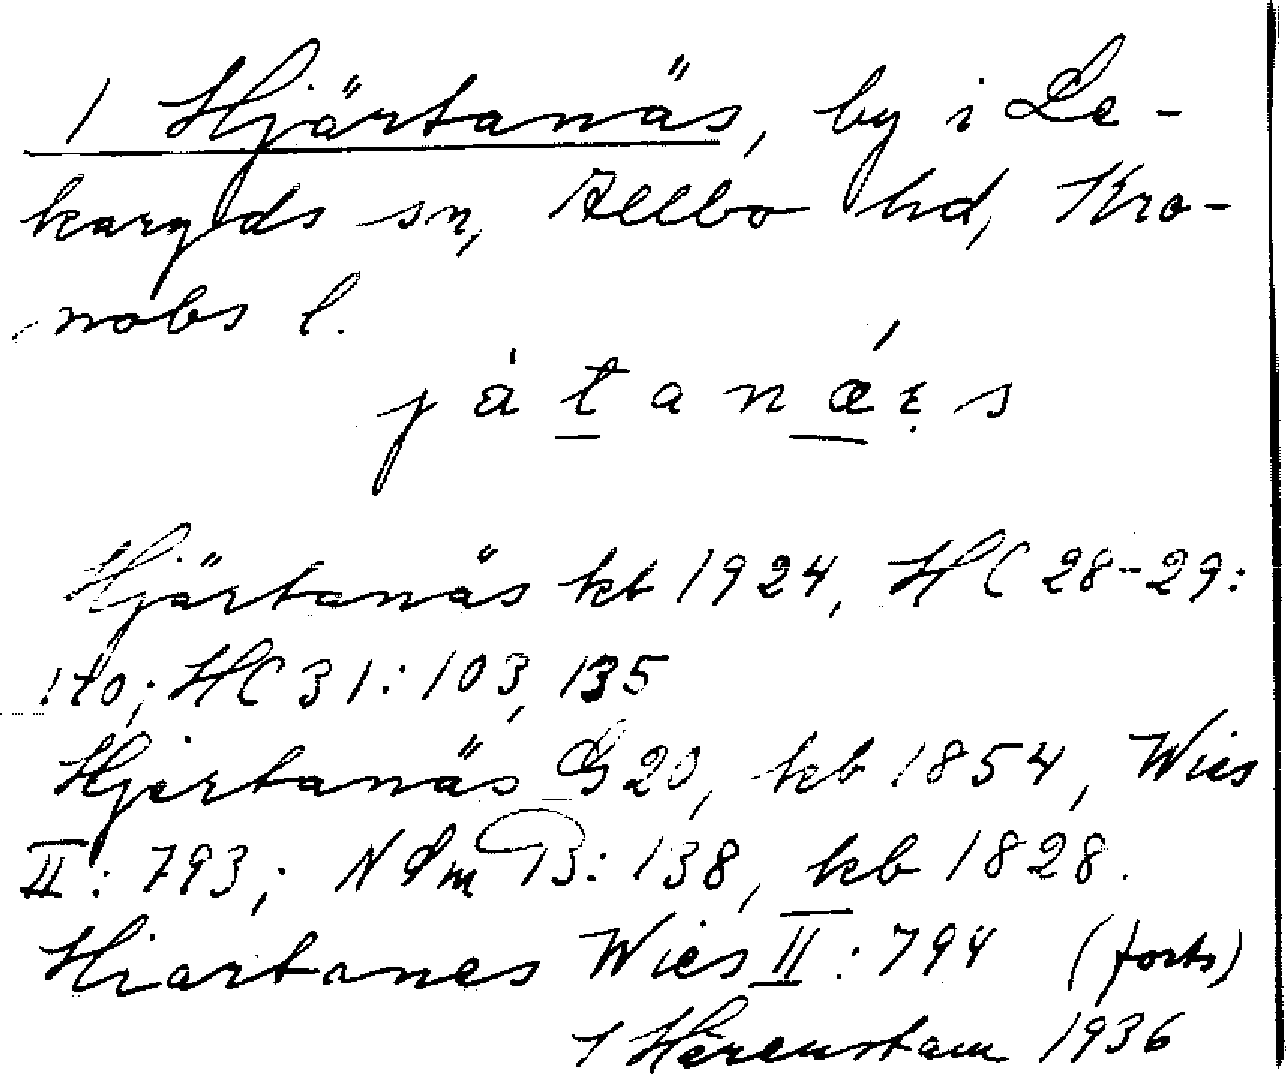 1 Hjärtanäs, by i Le-
karyds sn, Allbo hd, Kro-
nobs l.
játanǽɛs
Hjärtanäs kb 1924, HC 28-29:
140; HC 31: 103, 135
Hjertanäs G 20, kb 1854, Wies
II: 793; NSm B: 138, kb 1828.
Hiartanes Wies II: 794 (forts)
J Härenstam 1936